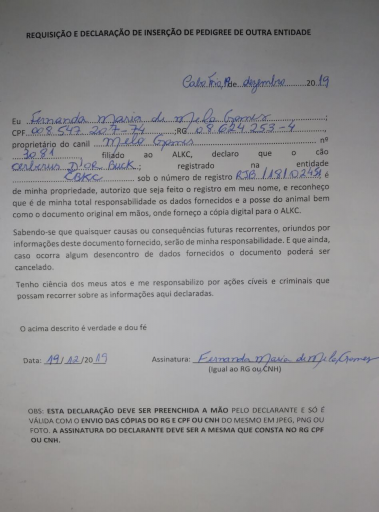 REQUISIÇÃO E DECLARAÇÃO DE INSERÇÃO DE PEDIGREE DE OUTRA ENTIDADE
Cabo Frio, 19 de dezembro 2019
Eu Fernanda Maria de Melo Gomes;
CPF 008.547 207-74 ;RG 08.624.253-4,
proprietário do canil Melo Gomes nº
3081, filiado ao ALKC, declaro que o cão
Cerberus D'OR Buck; registrado na entidade
CBKC sob o número de registro RJB/18/02451 é
de minha propriedade, autorizo que seja feito o registro em meu nome, e reconheço
que é de minha total responsabilidade os dados fornecidos e a posse do animal bem
como o documento original em mãos, onde forneço a cópia digital para o ALKC.
Sabendo-se que quaisquer causas ou consequências futuras recorrentes, oriundos por
informações deste documento fornecido, serão de minha responsabilidade. E que ainda,
caso ocorra algum desencontro de dados fornecidos o documento poderá ser
cancelado.
Tenho ciência dos meus atos e me responsabilizo por ações cíveis e criminais que
possam recorrer sobre as informações aqui declaradas.
O acima descrito é verdade e dou fé
Data: 19/12/2019 Assinatura: Fernanda Maria de Melo Gomes
(Igual ao RG ou CNH)
OBS: ESTA DECLARAÇÃO DEVE SER PREENCHIDA A MÃO PELO DECLARANTE E SÓ É
VÁLIDA COM O ENVIO DAS CÓPIAS DO RG E CPF OU CNH DO MESMO EM JPEG, PNG OU
FOTO. A ASSINATURA DO DECLARANTE DEVE SER A MESMA QUE CONSTA NO RG CPF
OU CNH.